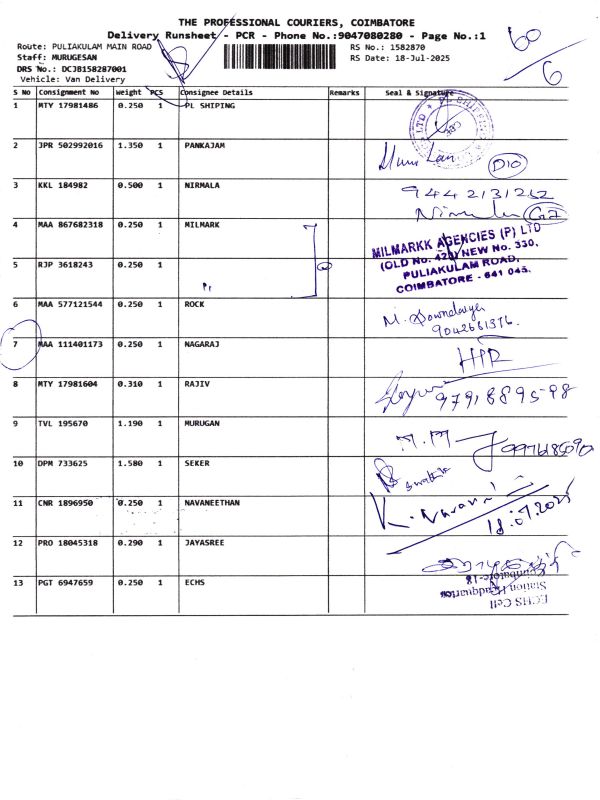 THE PROFESSIONAL COURIERS, COIMBATORE
Delivery Runsheet - PCR - Phone No.:9047080280 - Page No.:1
Route: PULIAKULAM MAIN ROAD
RS No.: 1582870
Staff: MURUGESAN
RS Date: 18-Jul-2025
DRS No.: DCJB158287001
Vehicle: Van Delivery
60/6
S No Consignment No Weight PCS Consignee Details Remarks Seal & Signature
1 MTY 17981486 0.250 1 PL SHIPING
2 JPR 502992016 1.350 1 PANKAJAM
3 KKL 184982 0.500 1 NIRMALA 9442131252
4 MAA 867682318 0.250 1 MILMARK
MILMARKK AGENCIES (P) LTD
(OLD No. 423) NEW No. 330,
PULIAKULAM ROAD,
COIMBATORE - 641 045.
5 RJP 3618243 0.250 1 "
6 MAA 577121544 0.250 1 ROCK
7 MAA 111401173 0.250 1 NAGARAJ
8 MTY 17981604 0.310 1 RAJIV
9 TVL 195670 1.190 1 MURUGAN
10 DPM 733625 1.580 1 SEKER
11 CNR 1896950 0.250 1 NAVANEETHAN
18.07.2025
12 PRO 18045318 0.290 1 JAYASREE
13 PGT 6947659 0.250 1 ECHS
ECHS Cell
Station Headquarters
Coimbatore-18